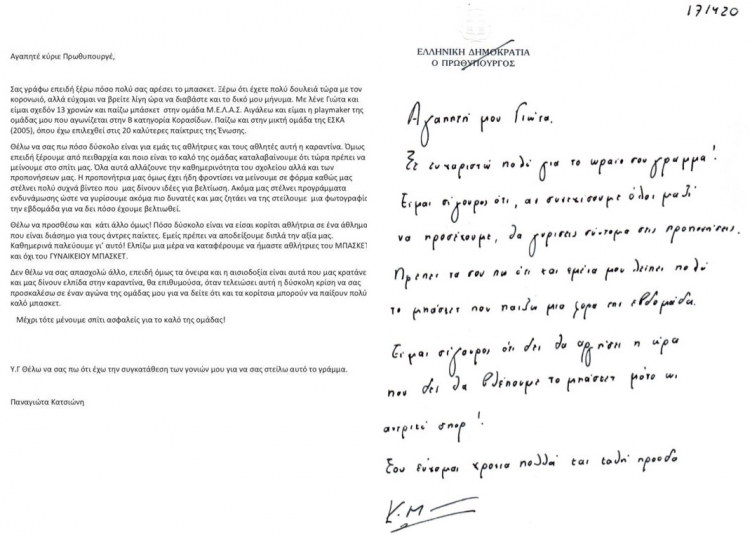 Αγαπητέ κύριε Πρωθυπουργέ,
Σας γράφω επειδή ξέρω πόσο πολύ σας αρέσει το μπασκετ. Ξέρω ότι έχετε πολύ δουλειά τώρα με τον
κορονωιό, αλλά εύχομαι να βρείτε λίγη ώρα να διαβάστε και το δικό μου μήνυμα. Με λένε Γιώτα και
είμαι σχεδόν 13 χρονών και παίζω μπάσκετ στην ομάδα Μ.Ε.Λ.Α.Σ. Αιγάλεω και είμαι η playmaker της
ομάδας μου που αγωνίζεται στην Β κατηγορία Κορασίδων. Παίζω και στην μικτή ομάδα της ΕΣΚΑ
(2005), όπου έχω επιλεχθεί στις 20 καλύτερες παίκτριες της Ένωσης.
Θέλω να σας πω πόσο δύσκολο είναι για εμάς τις αθλήτριες και τους αθλητές αυτή η καραντίνα. Όμως
επειδή ξέρουμε από πειθαρχία και ποιο είναι το καλό της ομάδας καταλαβαίνουμε ότι τώρα πρέπει να
μείνουμε στο σπίτι μας. Όλα αυτά αλλάζουν την καθημερινότητα του σχολείου αλλά και των
προπονήσεων μας. Η προπονήτρια μας όμως έχει ήδη φροντίσει να μείνουμε σε φόρμα καθώς μας
στέλνει πολύ συχνά βίντεο που μας δίνουν ιδέες για βελτίωση. Ακόμα μας στέλνει προγράμματα
ενδυνάμωσης ώστε να γυρίσουμε ακόμα πιο δυνατές και μας ζητάει να της στείλουμε μια φωτογραφία
την εβδομάδα για να δει πόσο έχουμε βελτιωθεί.
Θέλω να προσθέσω και κάτι άλλο όμως! Πόσο δύσκολο είναι να είσαι κορίτσι αθλήτρια σε ένα άθλημα
που είναι διάσημο για τους άντρες παίκτες. Εμείς πρέπει να αποδείξουμε διπλά την αξία μας.
Καθημερινά παλεύουμε γι' αυτό! Ελπίζω μια μέρα να καταφέρουμε να ήμαστε αθλήτριες του ΜΠΑΣΚΕΤ
και όχι του ΓΥΝΑΙΚΕΙΟΥ ΜΠΑΣΚΕΤ.
Δεν θέλω να σας απασχολώ άλλο, επειδή όμως τα όνειρα και η αισιοδοξία είναι αυτά που μας κρατάνε
και μας δίνουν ελπίδα στην καραντίνα, θα επιθυμούσα, όταν τελειώσει αυτή η δύσκολη κρίση να σας
προσκαλέσω σε έναν αγώνα της ομάδας μου για να δείτε ότι και τα κορίτσια μπορούν να παίξουν πολύ
καλό μπασκετ.
Μέχρι τότε μένουμε σπίτι ασφαλείς για το καλό της ομάδας!
Υ.Γ Θέλω να σας πω ότι έχω την συγκατάθεση των γονιών μου για να σας στείλω αυτό το γράμμα.
Παναγιώτα Κατσιώνη
17/4/20
ΕΛΛΗΝΙΚΗ ΔΗΜΟΚΡΑΤΙΑ
Ο ΠΡΩΘΥΠΟΥΡΓΟΣ
Αγαπητή μου Γιώτα,
Σε ευχαριστώ πολύ για το ωραίο σου γράμμα!
Είμαι σίγουρος ότι, αν συνεχίσουμε όλοι μαζί
να προσέχουμε, θα γυρίσεις σύντομα στις προπονήσεις.
Πρέπει να σου πω ότι και εμένα μου λείπει πολύ
το μπάσκετ που παίζω μια φορά την εβδομάδα.
Είμαι σίγουρος ότι δεν θα αργήσει η ώρα
που δεν θα βλέπουμε το μπάσκετ μόνο ως
αντρικό σπορ!
Σου εύχομαι χρόνια πολλά και καλή πρόοδο
Κ.Μ